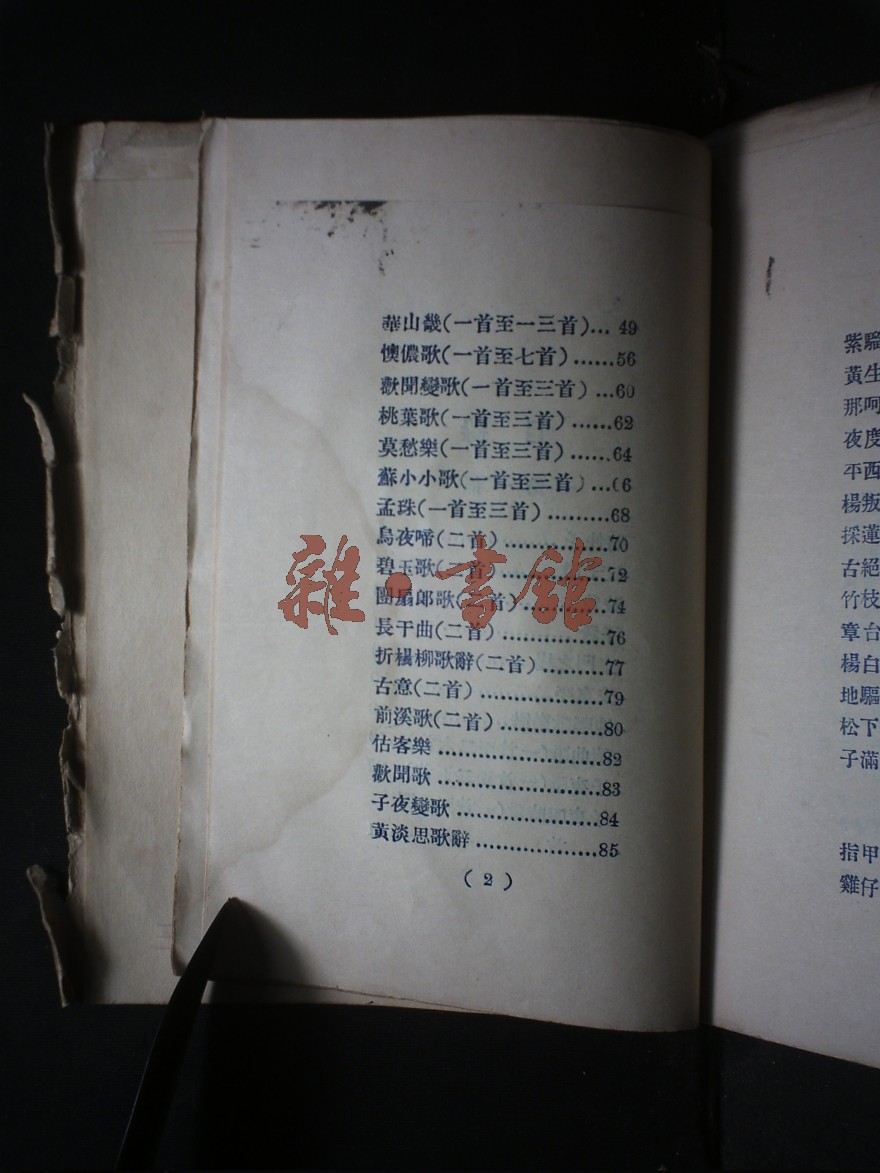 華山畿(一首至一三首)... 49
懊儂歌(一首至七首)......56
歡聞變歌(一首至三首)...60
桃葉歌(一首至三首)......62
莫愁樂(一首至三首)......64
蘇小小歌(一首至三首)...66
孟珠(一首至三首).........68
烏夜啼(二首)...............70
碧玉歌(二首)...............72
團扇郎歌(二首)............74
長干曲(二首)...............76
折楊柳歌辭(二首).........77
古意(二首)..................79
前溪歌(二首)...............80
估客樂........................82
歡聞歌........................83
子夜變歌.....................84
黃淡思歌辭..................85
(2)
雜·書館
紫騮
黃生
那呵
夜度
平西
楊叛
採蓮
古絕
竹枝
章台
楊白
地驅
松下
子滿
指甲
雞仔